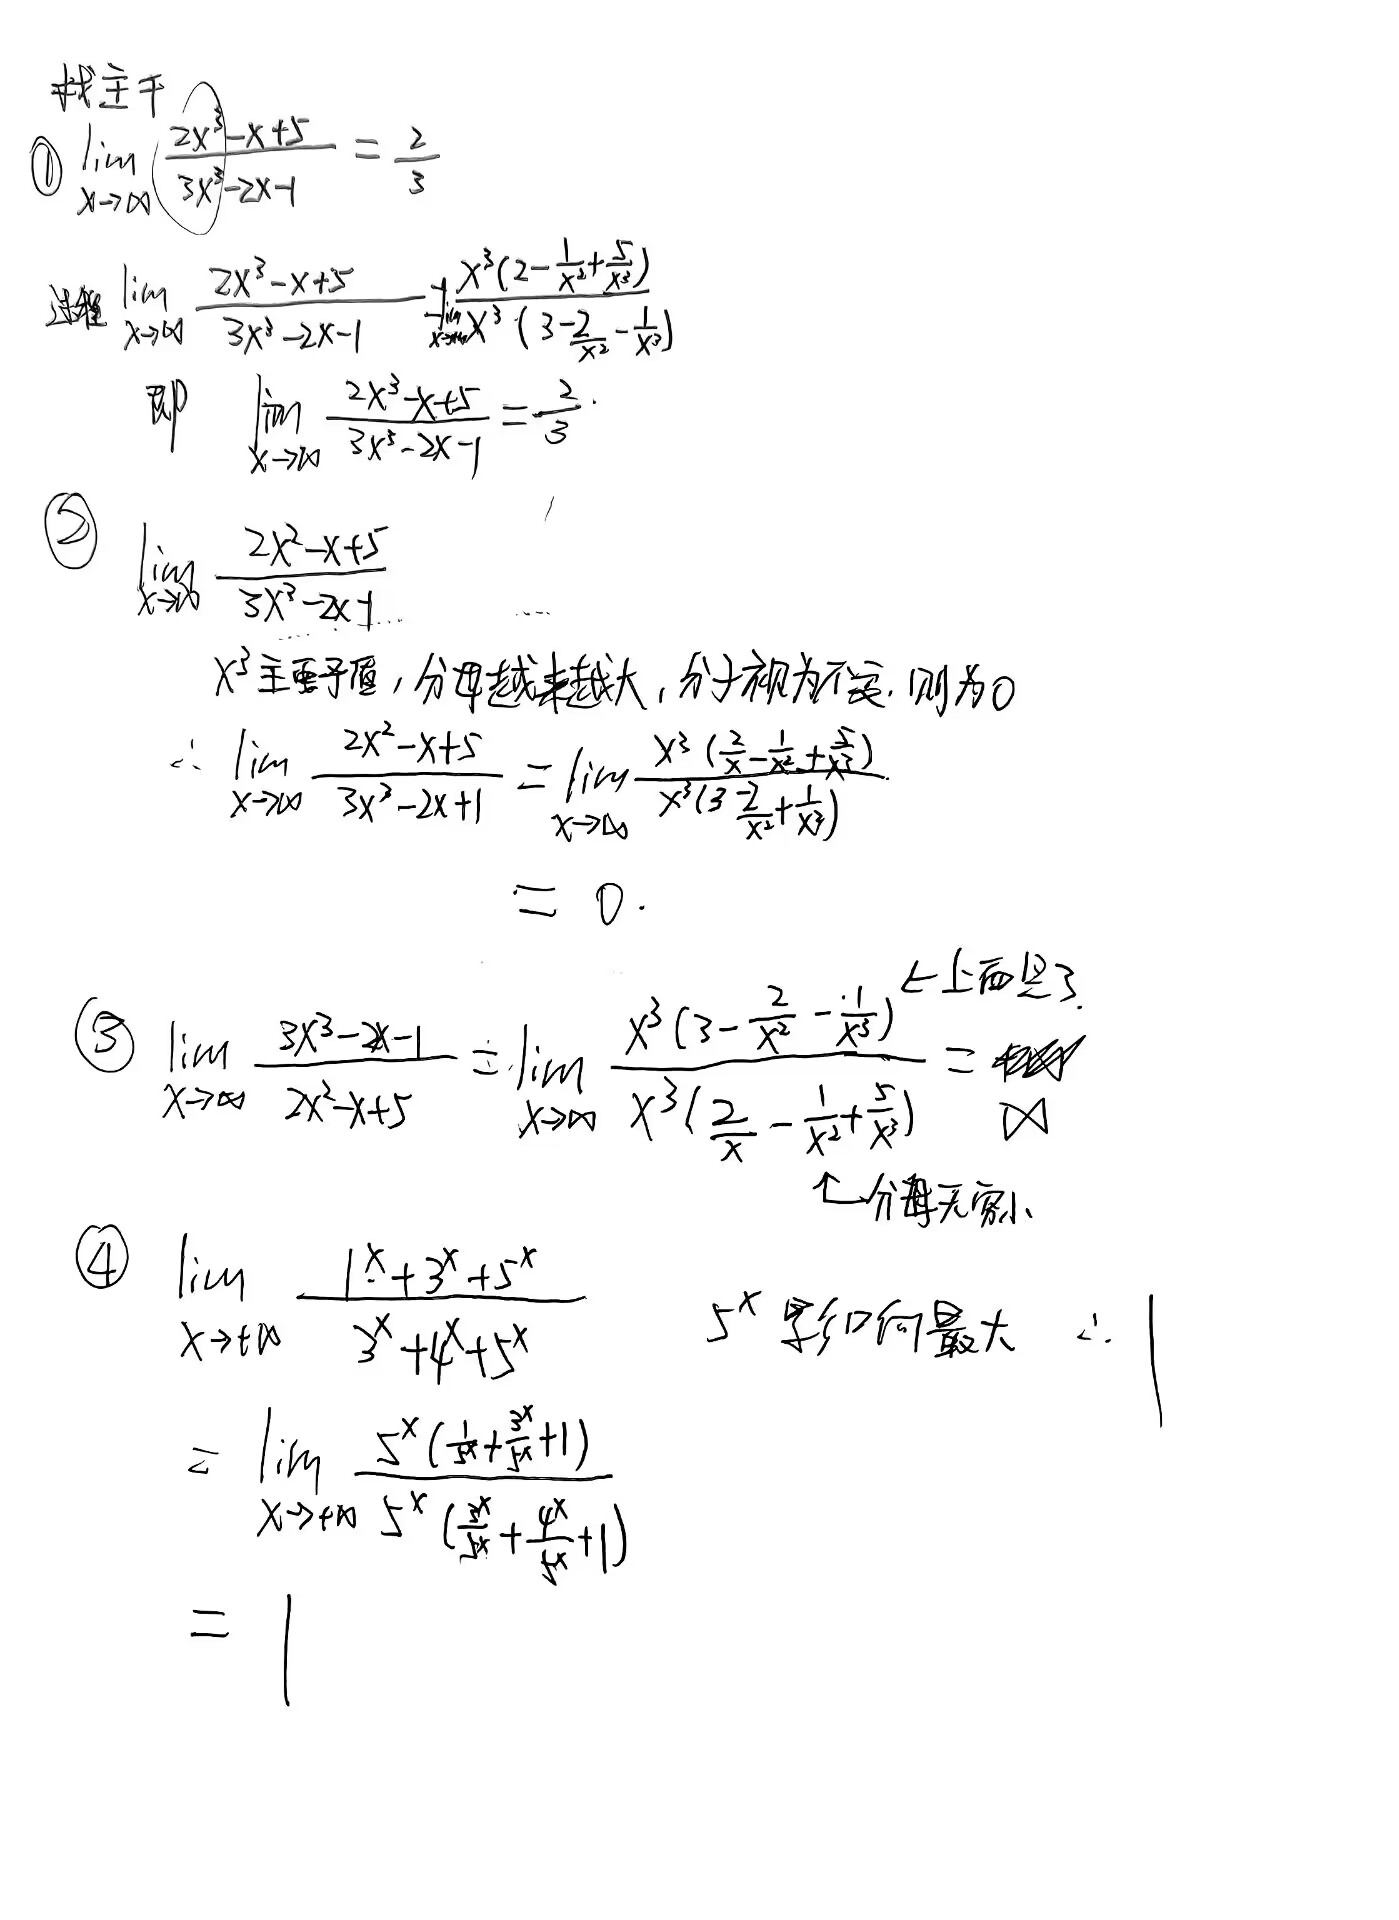 找主干
① lim x→∞ (2x³-x+5)/(3x³-2x-1) = 2/3
过程 lim x→∞ (2x³-x+5)/(3x³-2x-1) = lim x→∞ x³(2-1/x²+5/x³)/x³(3-2/x²-1/x³)
即 lim x→∞ (2x³-x+5)/(3x³-2x-1) = 2/3.
② lim x→∞ (2x²-x+5)/(3x³-2x-1)
x³主要, 分母越来越大, 分子视为不变. 则为0
∴ lim x→∞ (2x²-x+5)/(3x³-2x+1) = lim x→∞ x³(2/x-1/x²+5/x³)/x³(3-2/x²+1/x³)
= 0.
③ lim x→∞ (3x³-2x-1)/(2x²-x+5) = lim x→∞ x³(3-2/x²-1/x³)/x³(2/x-1/x²+5/x³) = ∞
←上面是3.
↑分母无穷小
④ lim x→+∞ (1ˣ+3ˣ+5ˣ)/(3ˣ+4ˣ+5ˣ) 5ˣ影响最大 ∴ 1
= lim x→+∞ 5ˣ(1/5ˣ+3ˣ/5ˣ+1)/5ˣ(3ˣ/5ˣ+4ˣ/5ˣ+1)
= 1